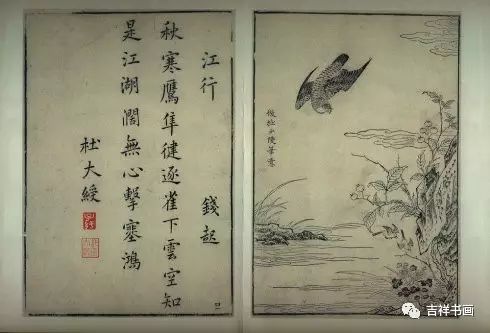 江行
錢起
秋寒鷹隼健逐雀下雲空知
是江湖闊無心擊塞鴻
杜大綬
筆意
吉祥书画